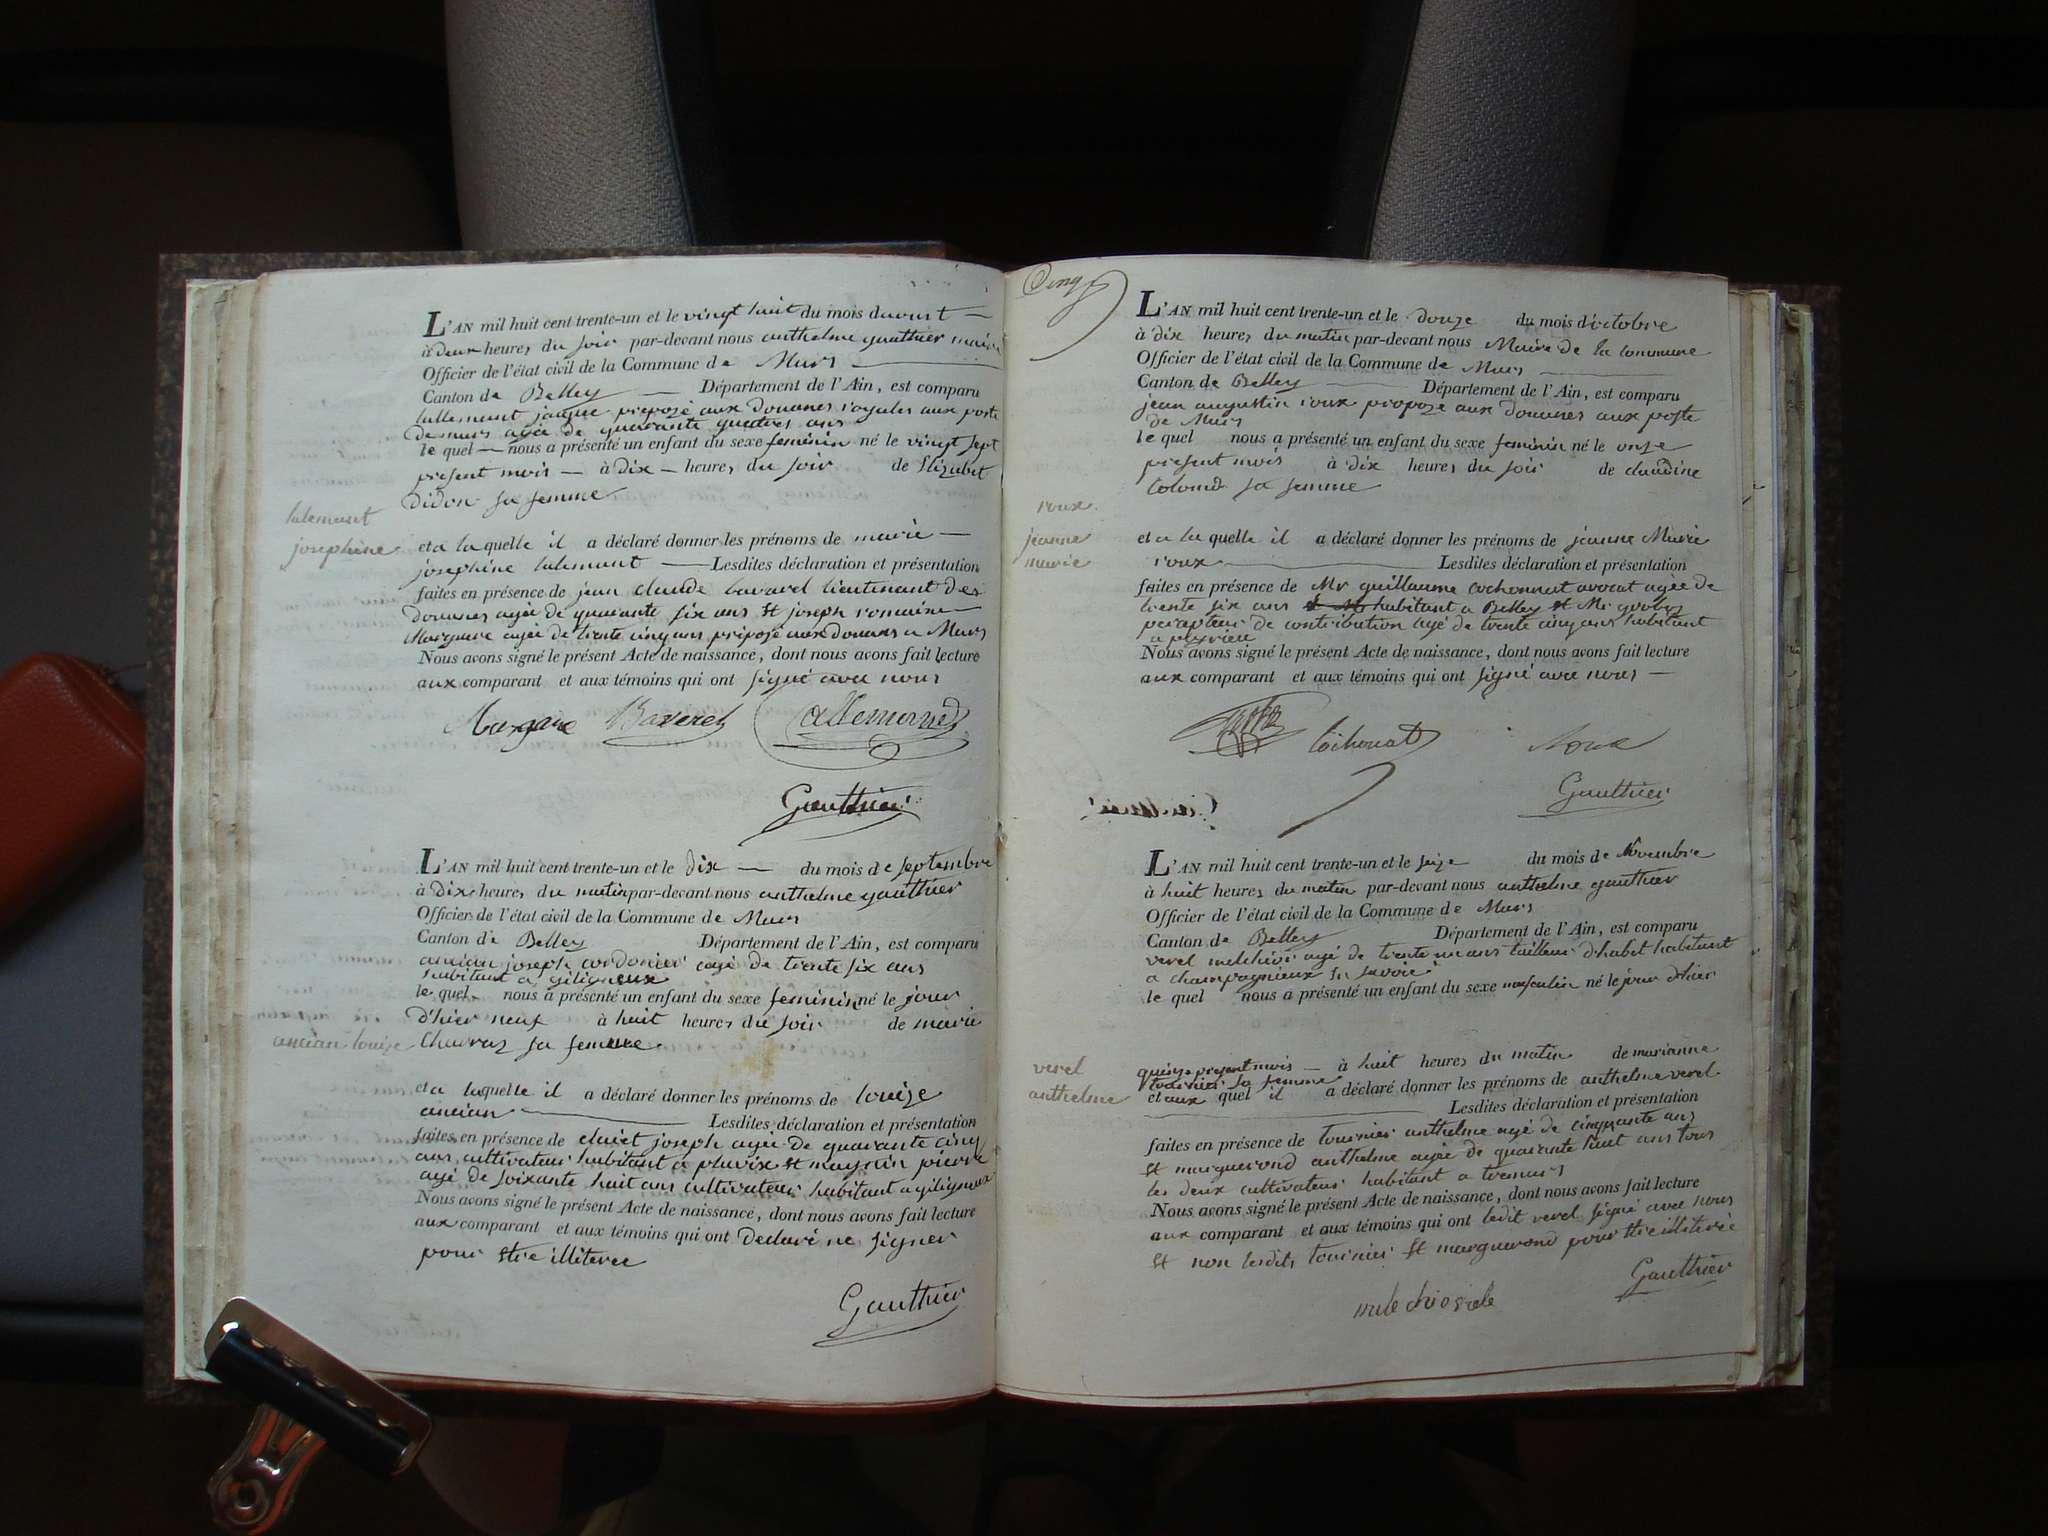 L'AN mil huit cent trente-un et le vingt huit du mois daoust
à deux heures du soir par-devant nous anthelme gauthier maire
Officier de l'état civil de la Commune de Murs
Canton de Belley Département de l'Ain, est comparu
lallemant jaque preposé aux douanes royales aux poste
de murs agée de quarante quatres ans
le quel nous a présenté un enfant du sexe feminin né le vingt sept
present mois à dix heures du soir de Elizabet
didon sa femme
lalemant
josephine
et a la quelle il a déclaré donner les prénoms de marie
josephine lalemant Lesdites déclaration et présentation
faites en présence de jean claude bavarel lieutenant des
douanes agée de quarante six ans et joseph romaine
Margaine agée de trente cinq ans préposé aux douanes a Murs
Nous avons signé le présent Acte de naissance, dont nous avons fait lecture
aux comparant et aux témoins qui ont signé avec nous
Margaine Baverel allemand
Gauthier
L'AN mil huit cent trente-un et le dix du mois de septembre
à dix heures du matin par-devant nous anthelme gauthier
Officier de l'état civil de la Commune de Murs
Canton de Belley Département de l'Ain, est comparu
ancian joseph cordonier agé de trente six ans
habitant a giligneux
le quel nous a présenté un enfant du sexe feminin né le jour
d'hier neuf à huit heures du soir de marie
ancian louize
chavraz sa femme
et a laquelle il a déclaré donner les prénoms de louize
ancian Lesdites déclaration et présentation
faites en présence de claret joseph agée de quarante cinq
ans cultivateur habitant a pluvix et maynin pierre
agé de soixante huit ans cultivateur habitant a giligneux
Nous avons signé le présent Acte de naissance, dont nous avons fait lecture
aux comparant et aux témoins qui ont declaré ne signer
pour etre illiteree
Gauthier
Cinq
L'AN mil huit cent trente-un et le douze du mois d'octobre
à dix heures du matin par-devant nous Maire de la commune
Officier de l'état civil de la Commune de Murs
Canton de Belley Département de l'Ain, est comparu
jean augustin roux propoze aux douanes aux poste
de Murs
le quel nous a présenté un enfant du sexe feminin né le onze
present mois à dix heures du soir de claudine
colomb sa femme
roux
jeanne
marie
et a la quelle il a déclaré donner les prénoms de jeanne Marie
roux Lesdites déclaration et présentation
faites en présence de Mr guillaume cochonnat avocat agée de
trente six ans habitant a Belley et Mr
percepteur de contribution agé de trente cinq ans habitant
a peyrieu
Nous avons signé le présent Acte de naissance, dont nous avons fait lecture
aux comparant et aux témoins qui ont signé avec nous
Cochonat Roux
Gauthier
L'AN mil huit cent trente-un et le seize du mois de Novembre
à huit heures du matin par-devant nous anthelme gauthier
Officier de l'état civil de la Commune de Murs
Canton de Belley Département de l'Ain, est comparu
verel melchior agé de trente un ans tailleur d'habit habitant
a champagnieux en savoie
le quel nous a présenté un enfant du sexe masculin né le jour d'hier
verel
anthelme
quinze present mois à huit heures du matin de marianne
tournier sa femme
et aux quel il a déclaré donner les prénoms de anthelme verel
Lesdites déclaration et présentation
faites en présence de tournier anthelme agé de cinquante ans
et marguerond anthelme agée de quarante huit ans tous
les deux cultivateur habitant a tremurs
Nous avons signé le présent Acte de naissance, dont nous avons fait lecture
aux comparant et aux témoins qui ont ledit verel signé avec nous
et non lesdits tournier et marguerond pour etre illiterée
Gauthier